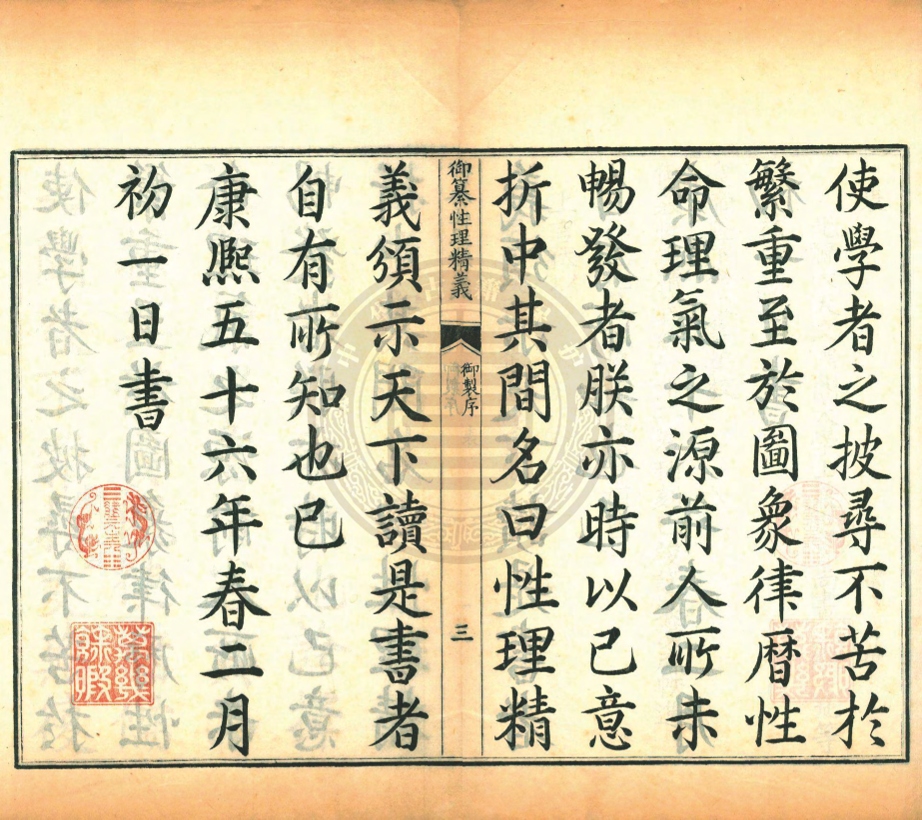 使學者之披尋不苦於
繁重至於圖象律曆性
命理氣之源前人所未
暢發者朕亦時以己意
折中其間名曰性理精
御纂性理精義
御製序
三
義頒示天下讀是書者
自有所知也已
康熙五十六年春二月
初一日書
萬幾餘暇